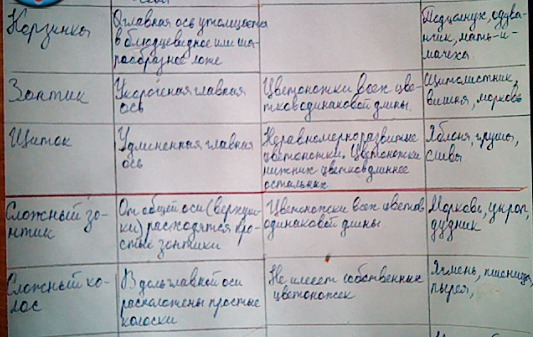 Корзинка
Главная ось утолщается
в блюдцевидное или ша-
рообразное ложе
Подсолнух, одува-
нчик, мать-и-
мачеха
Зонтик
Укороченная главная
ось
Цветоножки всех цве-
тков одинаковой длины.
Щитолистник,
вишня, морковь
Щиток
Удлиненная главная
ось
Неравномерно развитые
цветоножки. Цветоножки
нижних цветков длиннее
остальных
Яблоня, груша,
слива
Сложный зо-
нтик
От общей оси (верхуш-
ки) расходятся про-
стые зонтики
Цветоножки всех цветков
одинаковой длины
Морковь, укроп,
дудник
Сложный ко-
лос
Вдоль главной оси
расположены простые
колоски
Не имеет собственных
цветоножек
Ячмень, пшеница,
пырей,